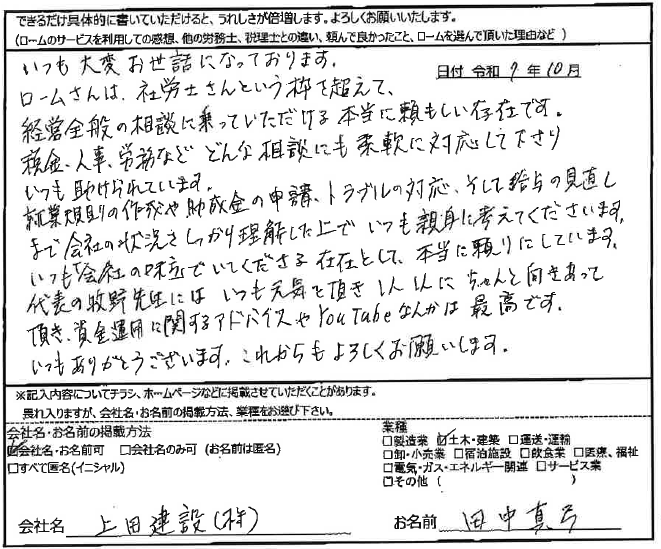 できるだけ具体的に書いていただけると、うれしさが倍増します。よろしくお願いいたします。
(ロームのサービスを利用しての感想、他の労務士、税理士との違い、頼んで良かったこと、ロームを選んで頂いた理由など )
日付 令和 7 年 10 月
いつも大変お世話になっております。
ロームさんは、社労士さんという枠を超えて、
経営全般の相談に乗っていただける本当に頼もしい存在です。
税金、人事、労務など どんな相談にも柔軟に対応して下さり
いつも助けられています。
就業規則の作成や助成金の申請、トラブルの対応、そして給与の見直し
まで会社の状況をしっかり理解した上で いつも親身に考えてくださいます。
いつも「会社の味方」でいてくださる存在として、本当に頼りにしています。
代表の牧野先生には いつも元気を頂き 1人1人に ちゃんと向きあって
頂き、資金運用に関するアドバイスやYouTubeなんかは 最高です。
いつもありがとうございます。これからもよろしくお願いします。
※記入内容についてチラシ、ホームページなどに掲載させていただくことがあります。
畏れ入りますが、会社名・お名前の掲載方法、業種をお選び下さい。
会社名・お名前の掲載方法
☑会社名・お名前可 □会社名のみ可 (お名前は匿名)
□すべて匿名(イニシャル)
業種
□製造業 ☑土木・建築 □運送・運輸
□卸・小売業 □宿泊施設 □飲食業 □医療、福祉
□電気・ガス・エネルギー関連 □サービス業
□その他 ( )
会社名 上田建設(株)
お名前 田中真弓